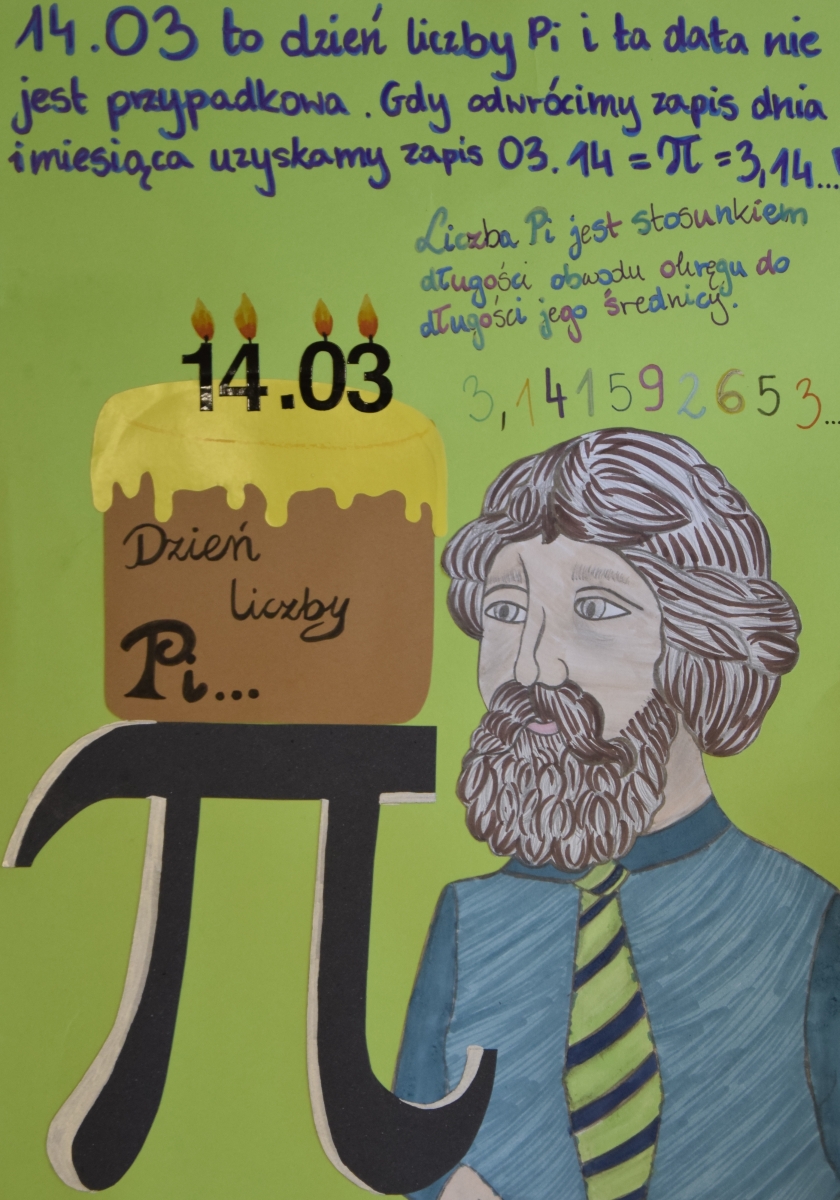 14.03 to dzień liczby Pi i ta data nie
jest przypadkowa. Gdy odwrócimy zapis dnia
i miesiąca uzyskamy zapis 03.14 = π = 3,14...!
Liczba Pi jest stosunkiem
długości obwodu okręgu do
długości jego średnicy.
3,141592653...
14.03
Dzień
liczby
Pi...
π